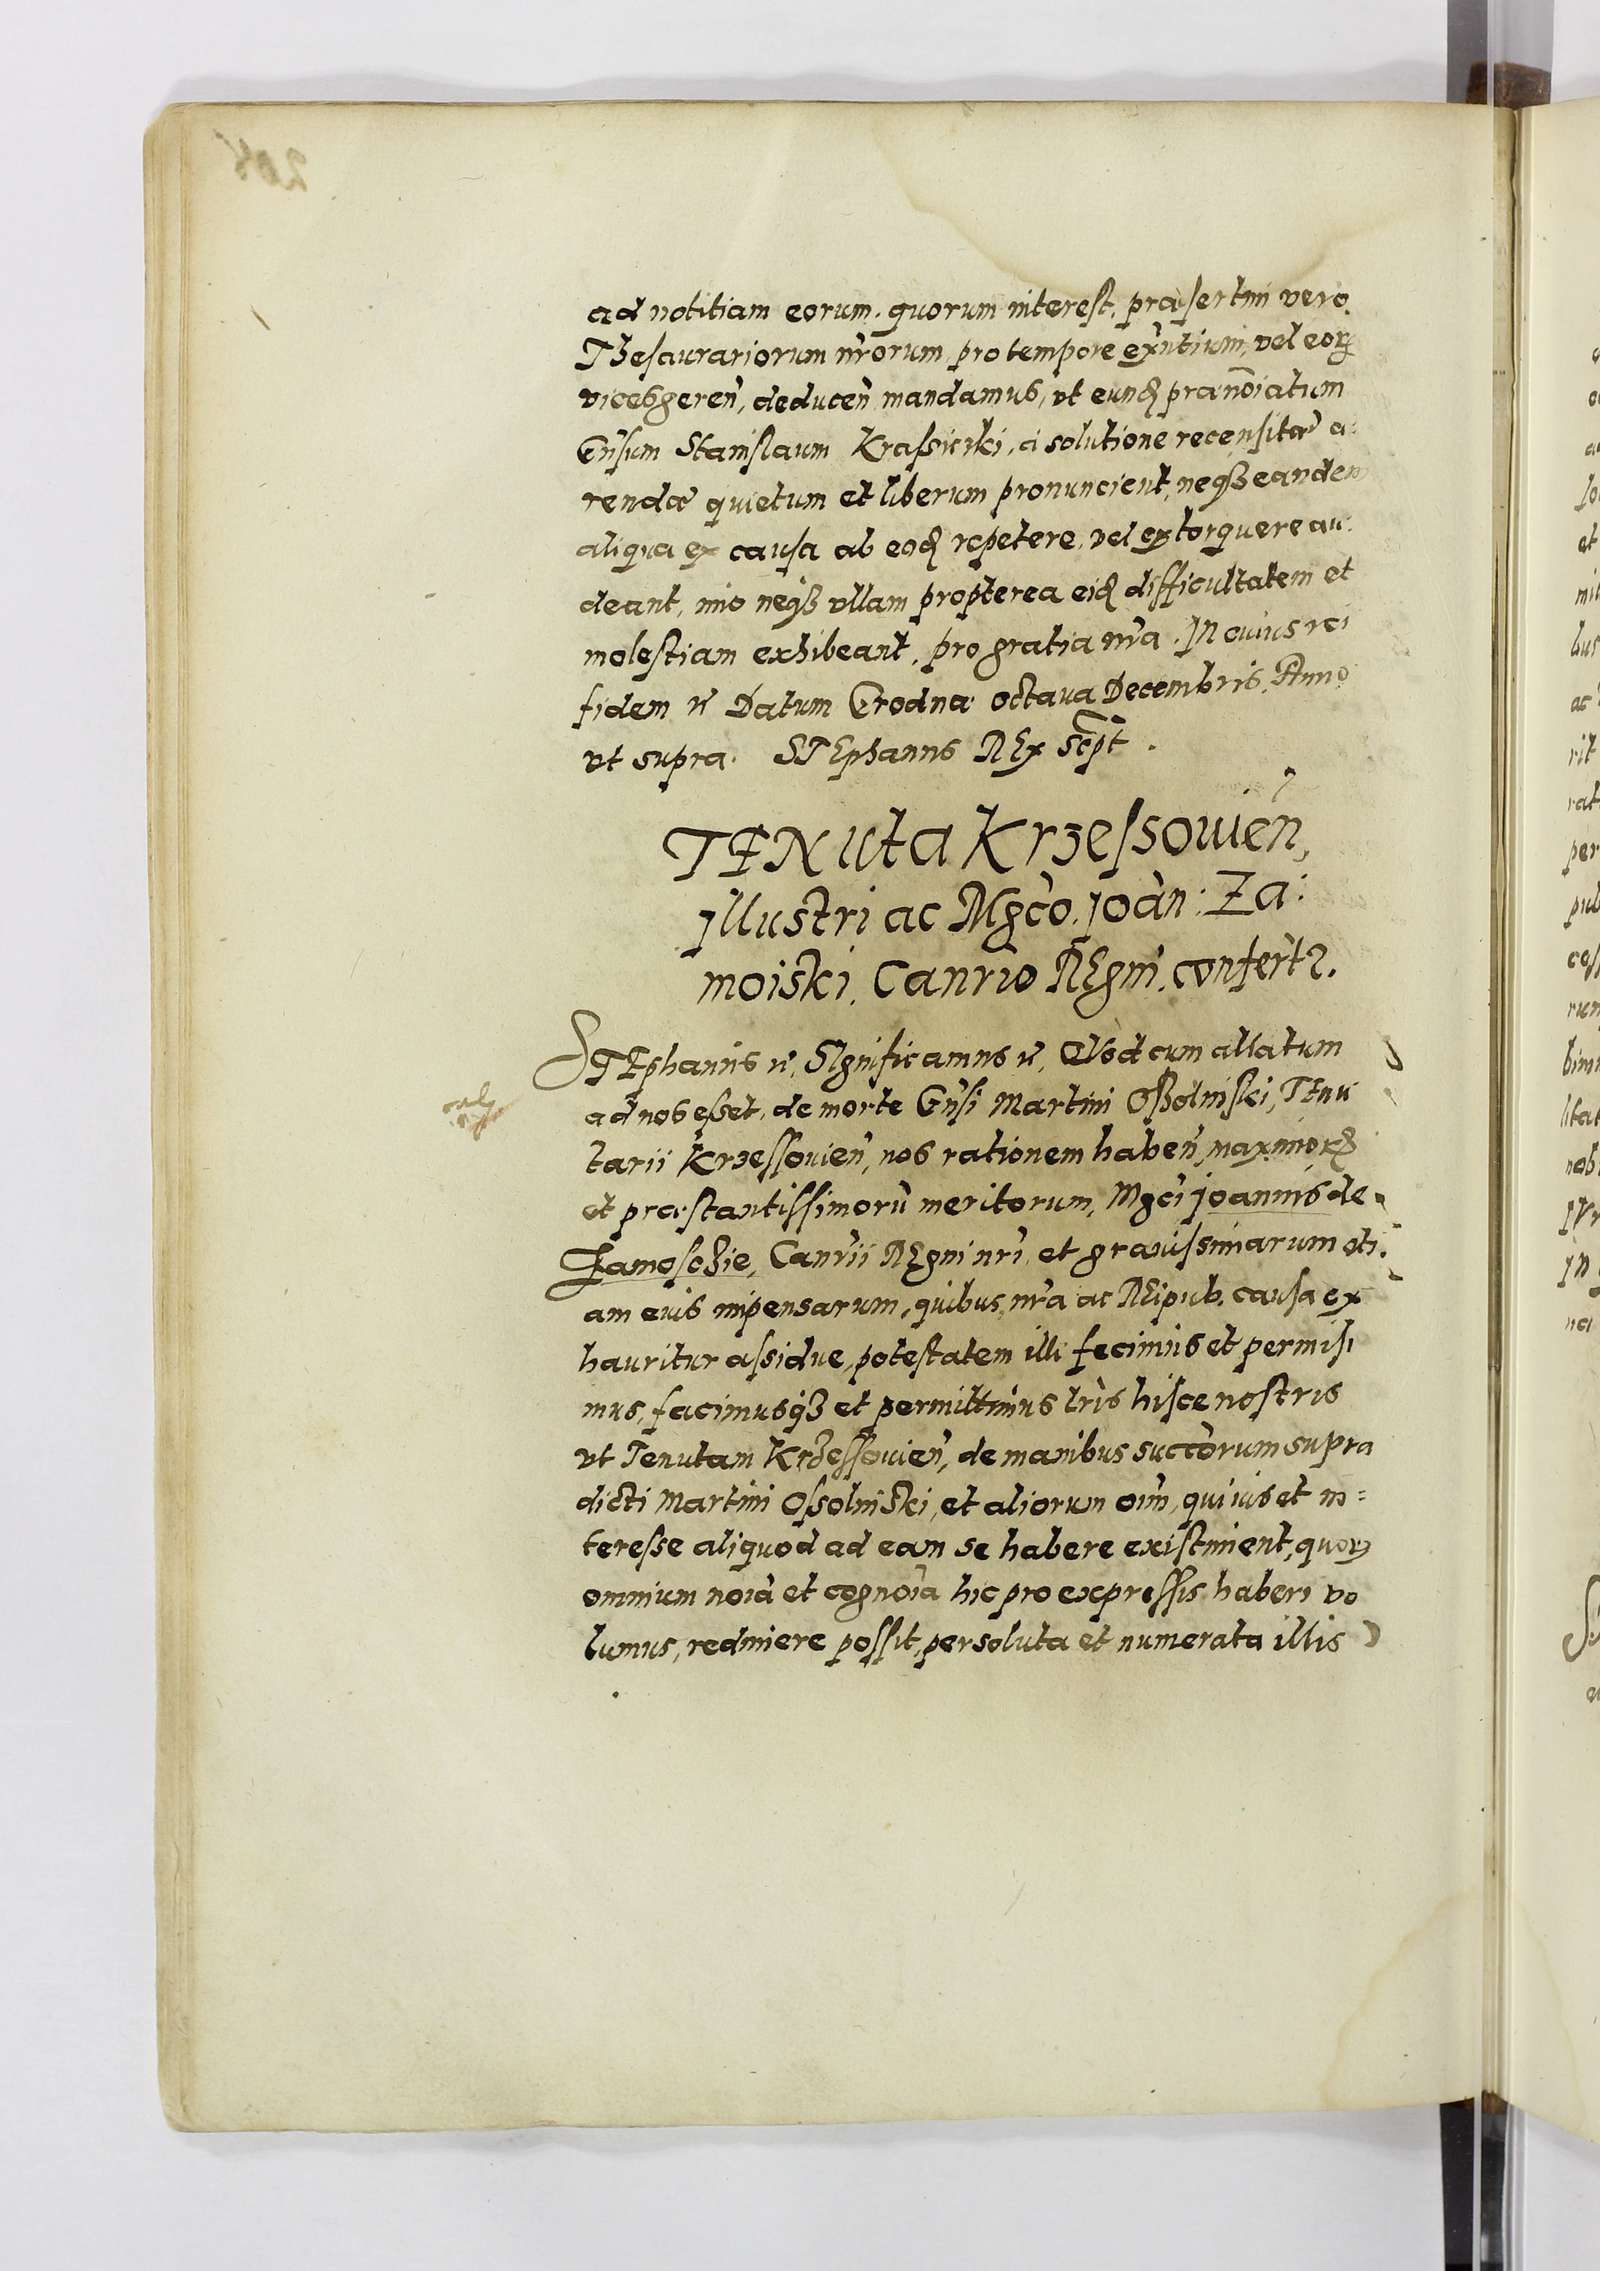 ad notitiam eorum, quorum interest, præsertim vero
Thesaurariorum nr̃orum, pro tempore exñtium, vel eorꝝ
vicesgereñ, deduceñ, mandamus, vt eundꝫ prænoĩatum
Gñsum Stanislaum Krassicki, a solutione recensitæ a:
rendæ quietum et liberum pronuncient, neqꝫ eandem
aliqua ex causa ab eodꝫ repetere, vel extorquere au:
deant, imo neqꝫ vllam propterea eidꝫ difficultatem et
molestiam exhibeant, pro gratia nr̃a. In cuius rei
fidem etc Datum Grodnæ octaua Decembris, Anno
vt supra. STEphanus REx scpt̃.
TENuta Krzessowieñ,
Illustri ac Mgc̃o. Joan: Za:
moiski, Canr̃io REgni, confertr.
STEphanus etc, SIgnificamus etc, QVod cum allatum
ad nos esset, de morte Gñsi Martini Ossolinski, TEnu
tarii Krzessouieñ, nos rationem habeñ, maximorꝝ
et præstantissimorũ meritorum, Mgc̃i Joannis de
Zamoschie, Canr̃ii REgni nr̃i, et grauissimarum eti:
am eius impensarum, quibus, nr̃a ac REipub. causa ex
hauritur assidue, potestatem illi fecimus et permisi
mus, facimusqꝫ et permittimus lr̃is hisce nostris
vt Tenutam Krzessouieñ, de manibus succc̃orum supra
dicti Martini Ossolinski, et aliorum oĩm, qui ius et in=
teresse aliquod ad eam se habere existiment, quorꝝ
omnium noĩa et cognoĩa hic pro expressis haberi vo
lumus, redimere possit, persoluta et numerata illis